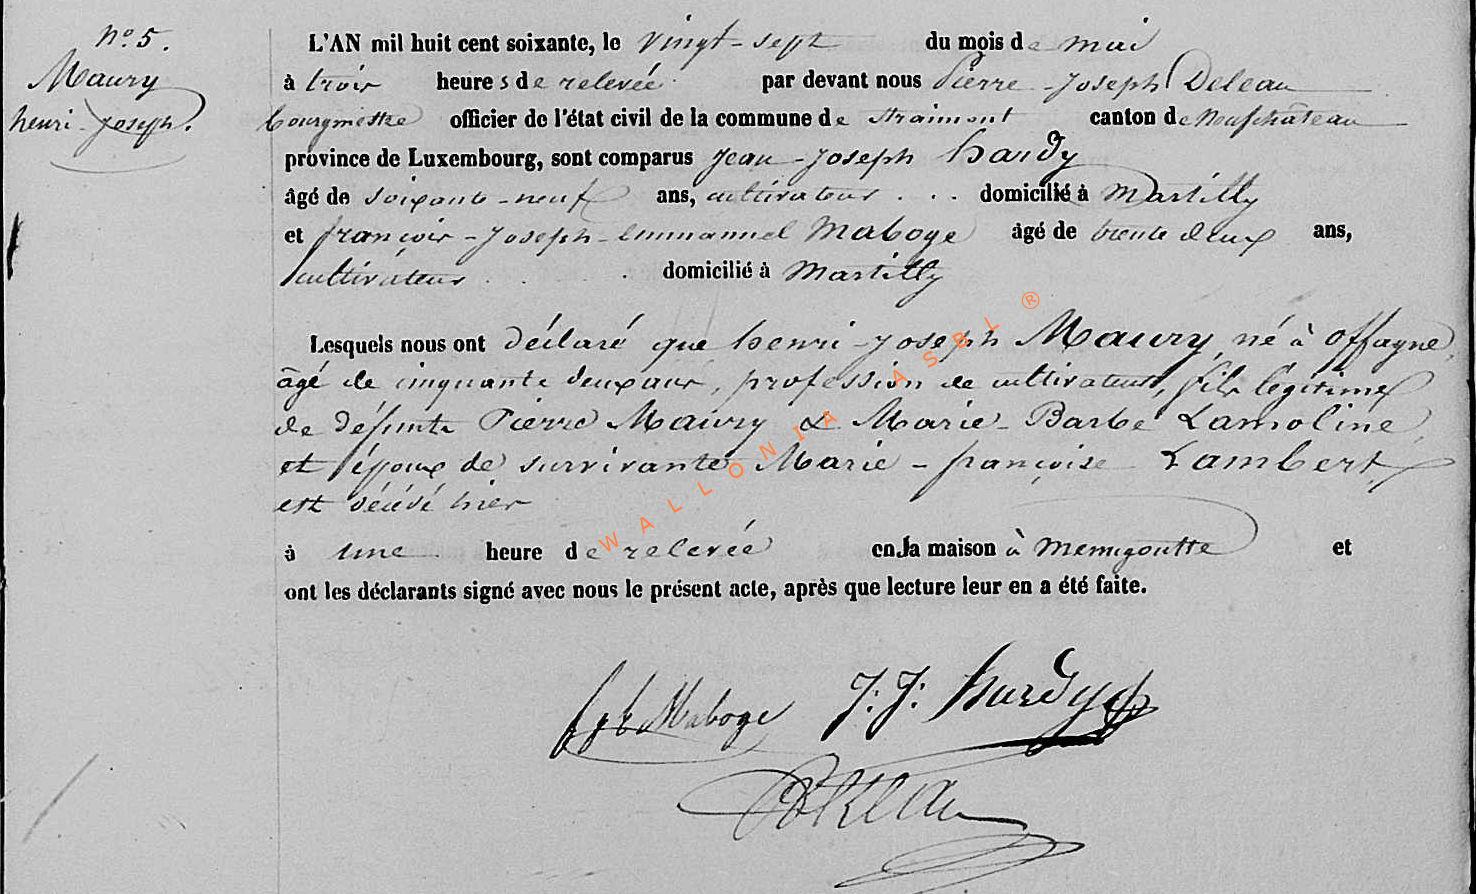 N° 5.
Maury
henri-Joseph.
L'AN mil huit cent soixante, le vingt-sept du mois de mai
à trois heures de relevée par devant nous Pierre-Joseph Deleau
bourgmestre officier de l'état civil de la commune de straimont canton de Neufchateau
province de Luxembourg, sont comparus Jean-Joseph hardy
âgé de soixante-neuf ans, cultivateur . . . domicilié à Martilly
et françois-Joseph-Emmanuel Maboge âgé de trente deux ans,
cultivateur . . . domicilié à Martilly
Lesquels nous ont déclaré que henri-Joseph Maury, né à Offagne,
âgé de cinquante deux ans, profession de cultivateur, fils légitime
de défunts Pierre Maury & Marie-Barbe Lamoline,
et époux de survivante Marie-françoise Lambert,
est décédé hier
à une heure de relevée en la maison à Memugoutte et
ont les déclarants signé avec nous le présent acte, après que lecture leur en a été faite.
Maboge J: J: hardy
Deleau
WALLONIA ASBL ®